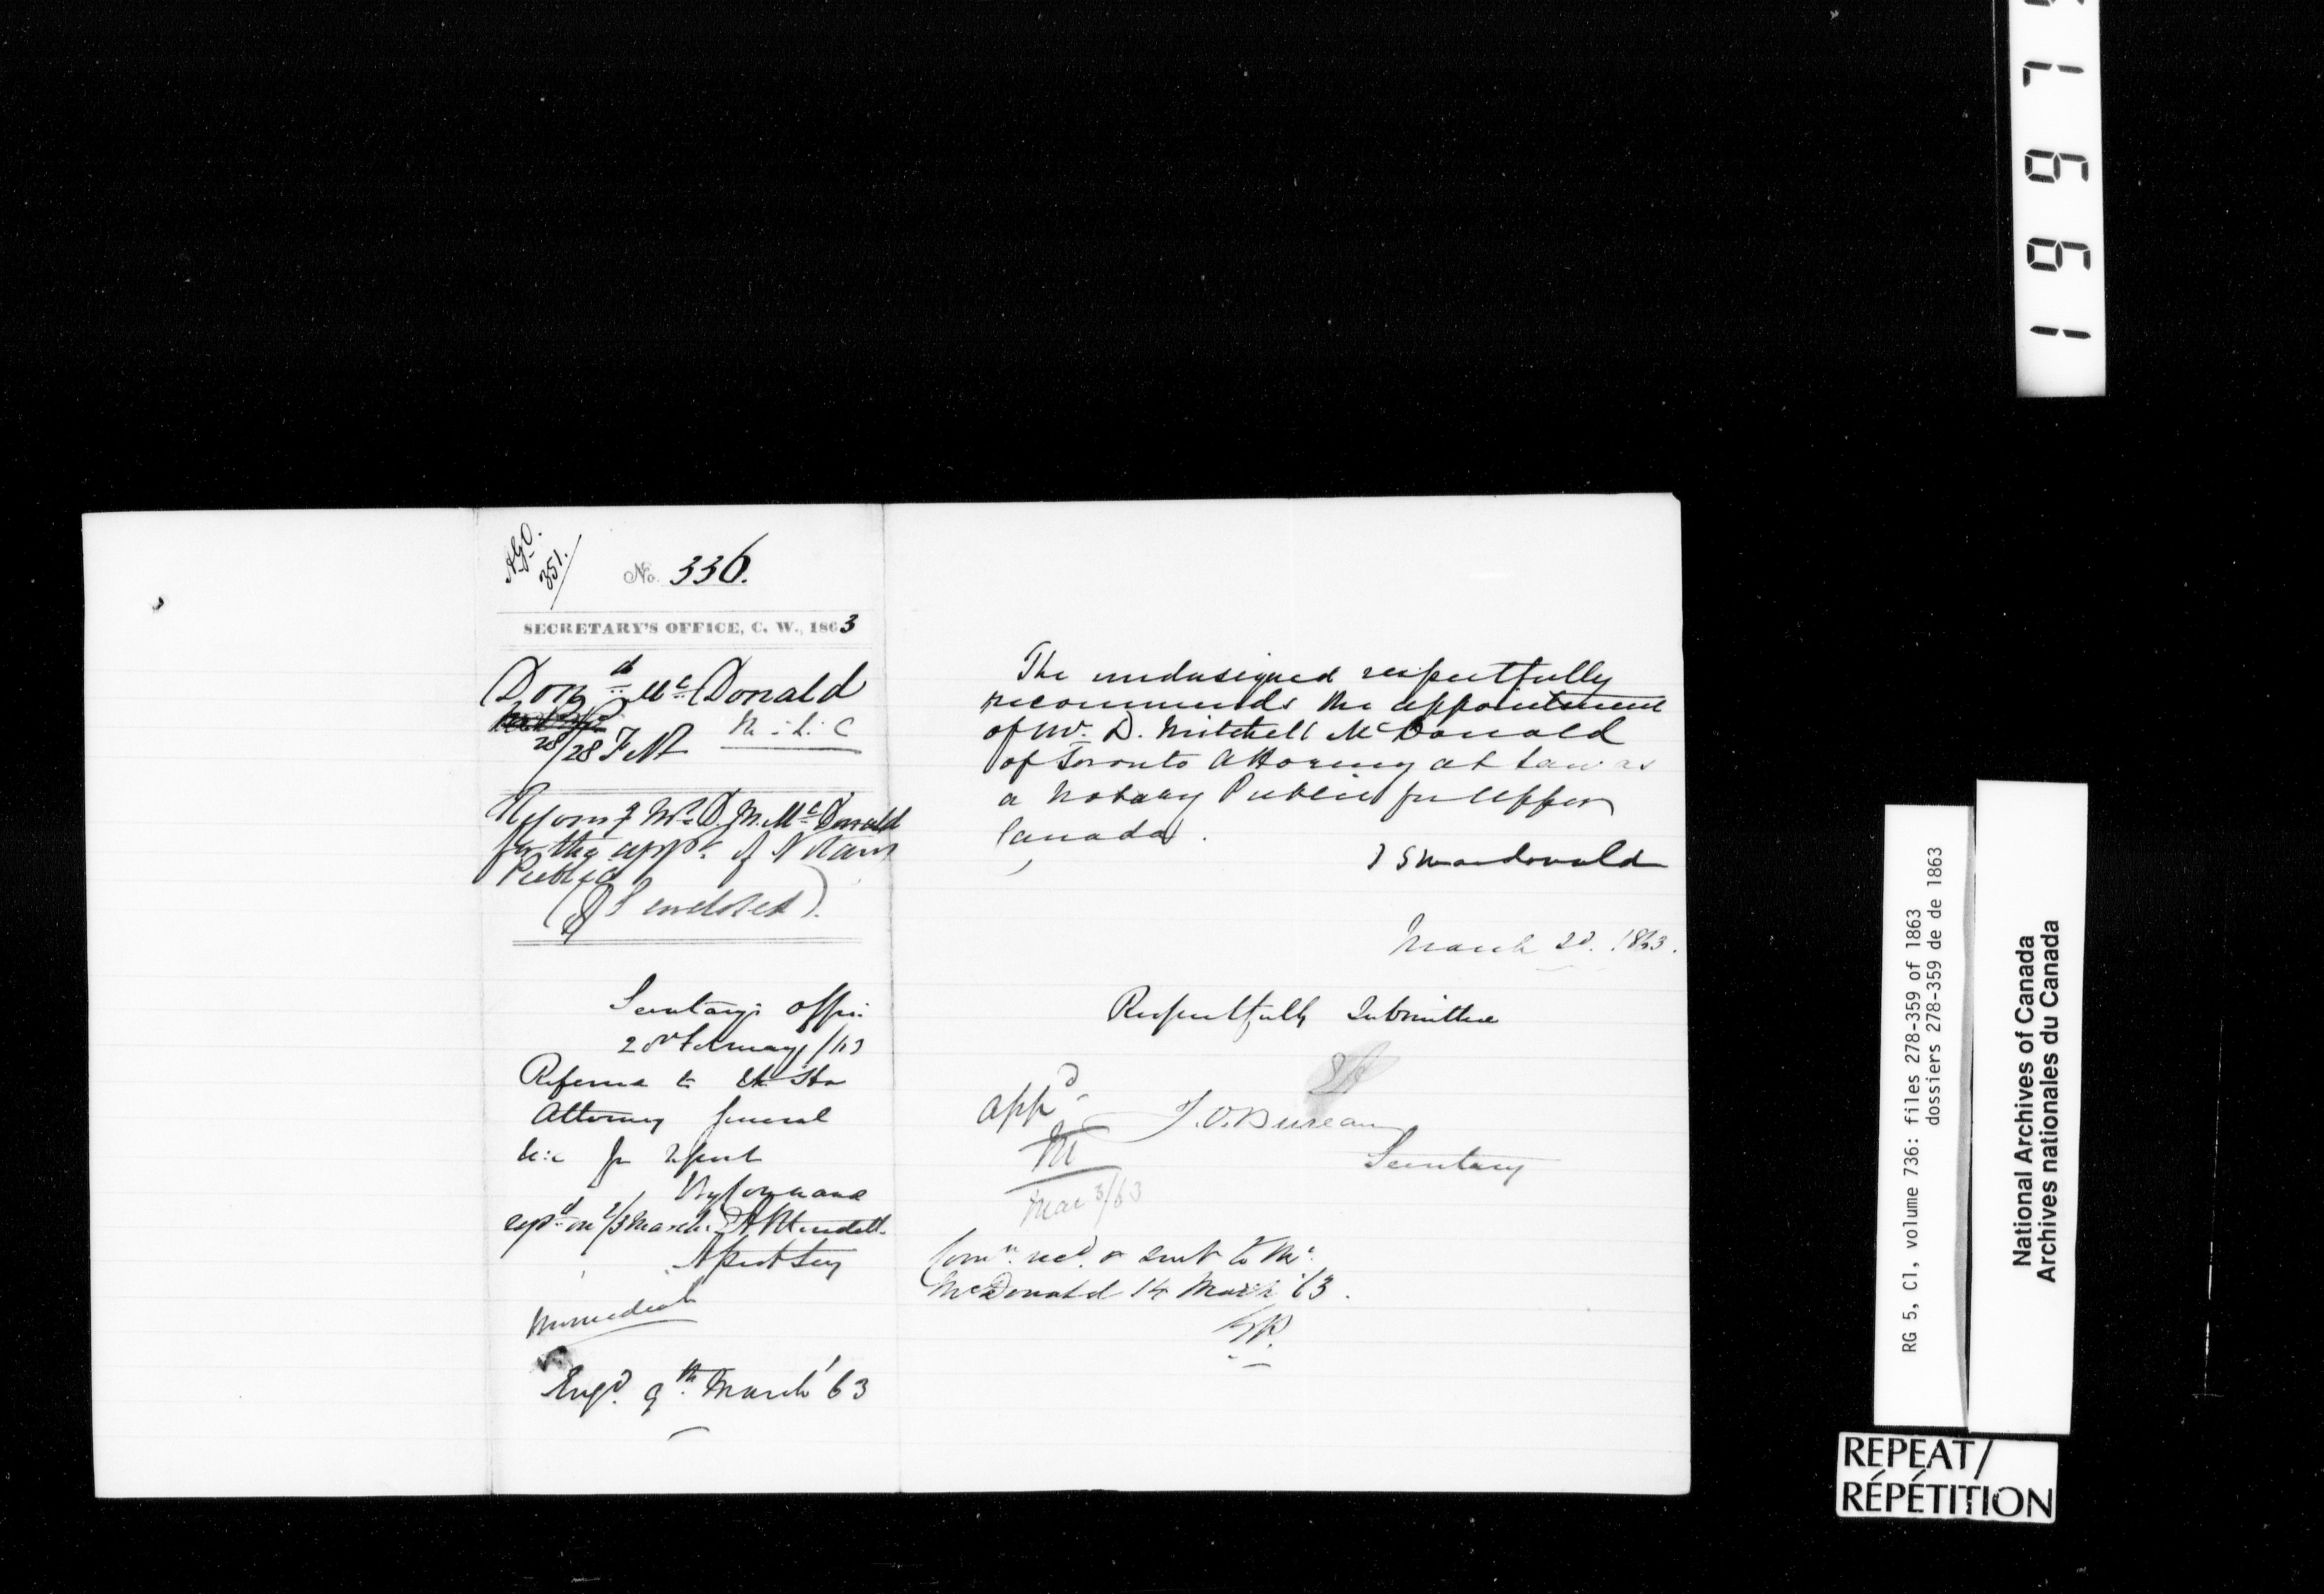 A.G.O.
351.
No. 336.
SECRETARY'S OFFICE, C. W., 1863
Don.d McDonald
M. L. C
28/28 Feb
Recom.g Mr. D. M. McDonald
for the appt. of Notary
Public
(enclosed).
Secretary's Office
February /63
Referred to the Hon
Attorney General
for Report
By Command
rep.d on 2/3 March
Asst Secy
Immediate
Eng.d 9th March '63
The undersigned respectfully
recommends the appointment
of Mr. D. Mitchell McDonald
of Toronto Attorney at Law as
a Notary Public for Upper
Canada.
J S Macdonald
March 2d. 1863.
Respectfully Submitted
App.d
J. O. Bureau
Secretary
M
Mar 3/63
Com.n rec.d & sent to Mr.
McDonald 14 March '63.
1 9 9 1
RG 5, C1, volume 736: files 278-359 of 1863
dossiers 278-359 de de 1863
National Archives of Canada
Archives nationales du Canada
REPEAT/
RÉPÉTITION